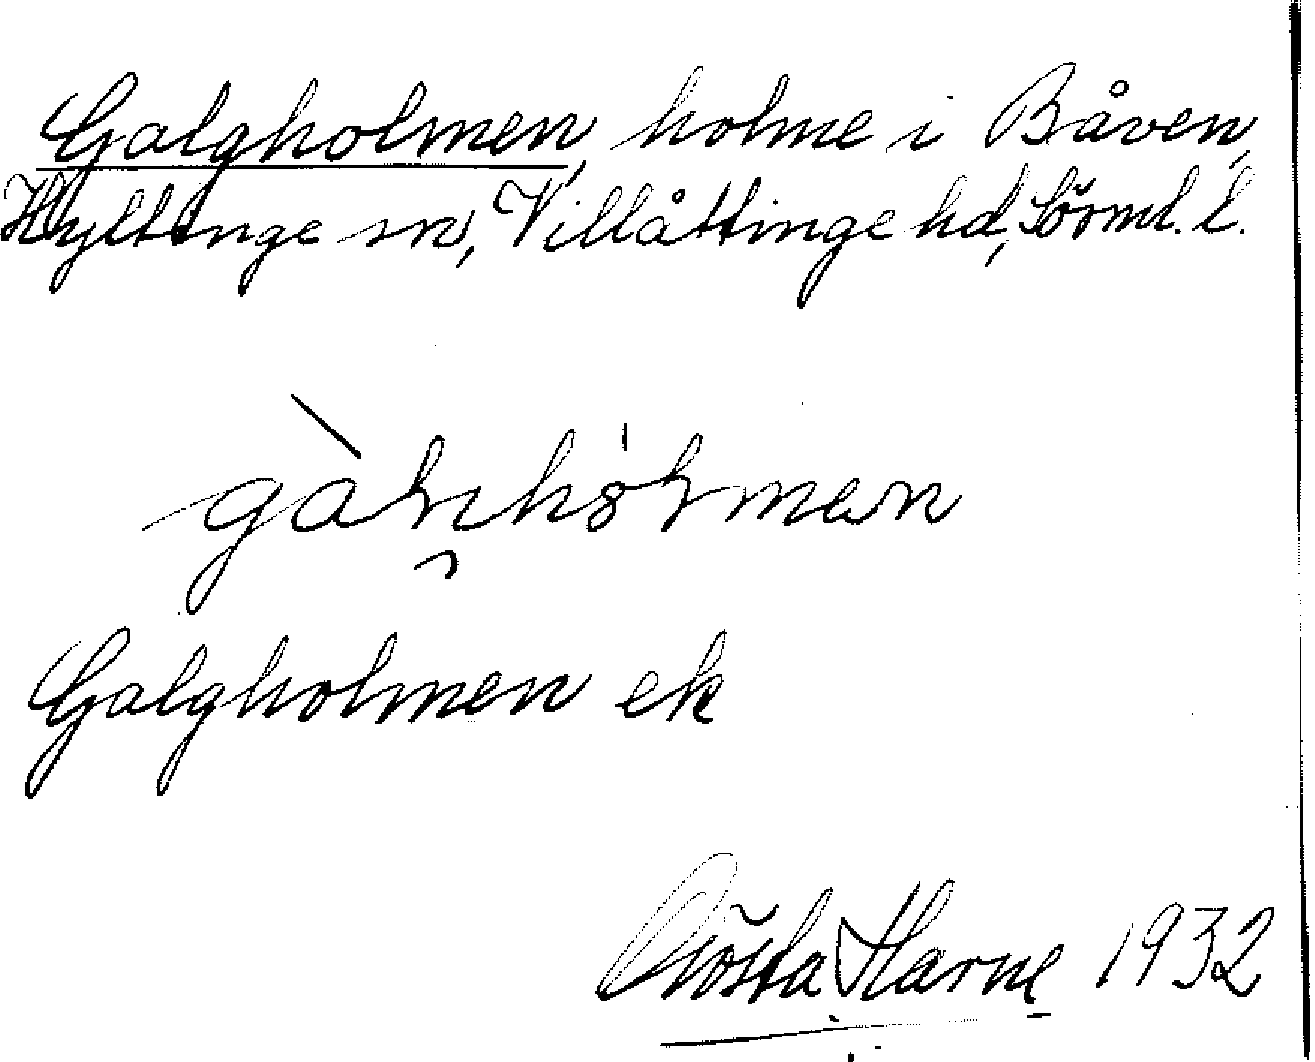 Galgholmen, holme i Båven,
Hyltinge sn, Villåttinge hd, Sörml. l.
gàlɉhòlmen
Galgholmen ek
Gösta Harne 1932